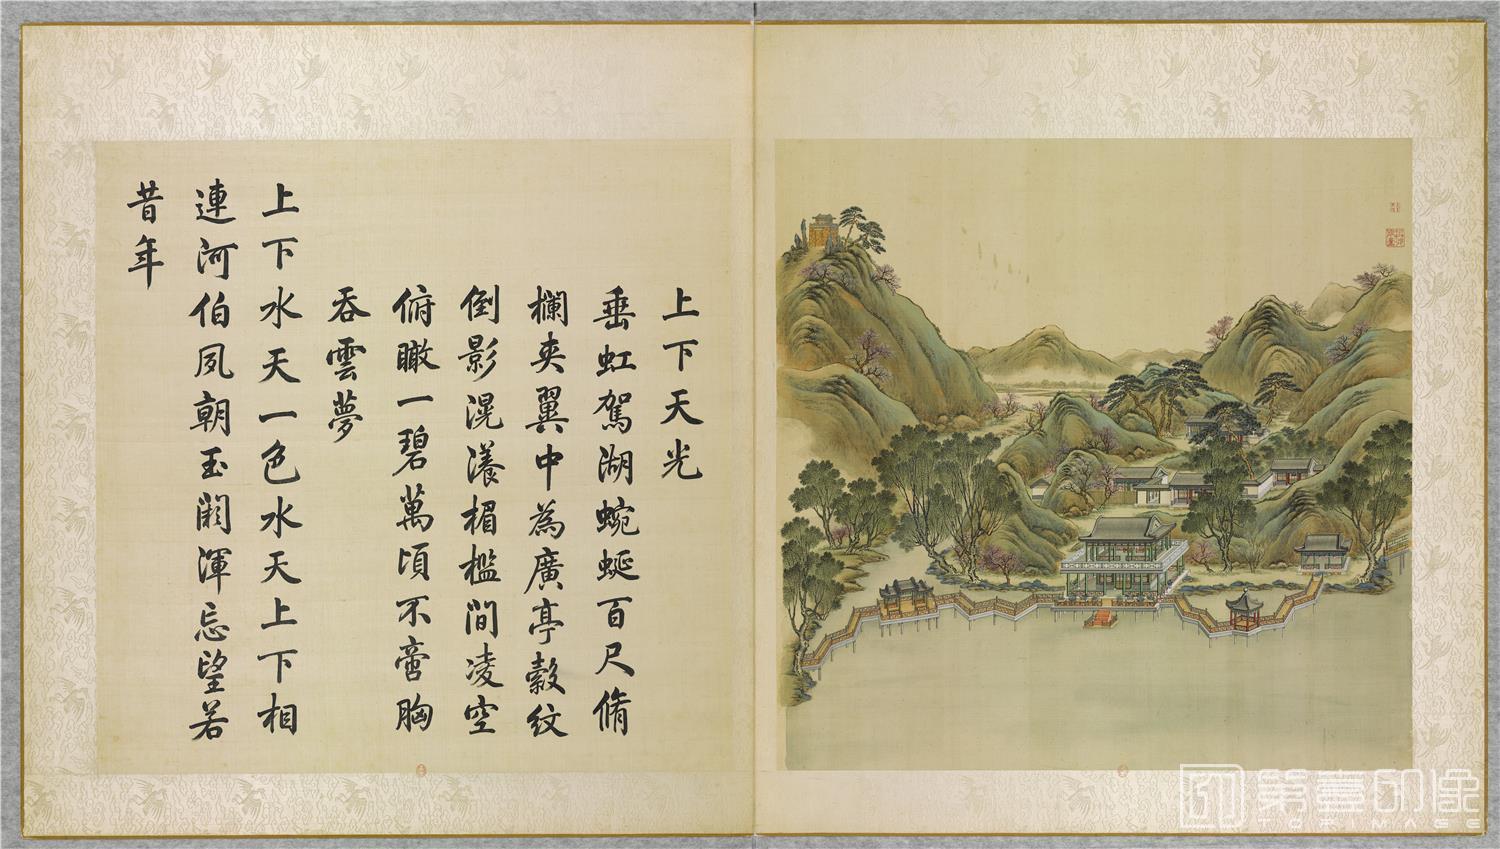 上下天光
垂虹駕湖蜿蜒百尺脩
欄夾翼中為廣亭縠紋
倒影滉瀁楣檻間凌空
俯瞰一碧萬頃不啻胸
吞雲夢
上下水天一色水天上下相
連河伯夙朝玉闕渾忘望若
昔年
第壹印像
TOPIMAGE